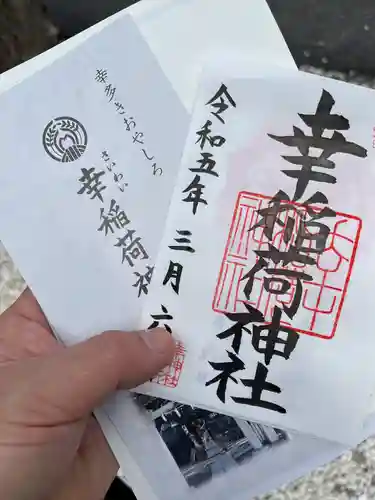 幸多きおやしろ
さいわい
幸稲荷神
令和五年三月六
幸稲荷神社